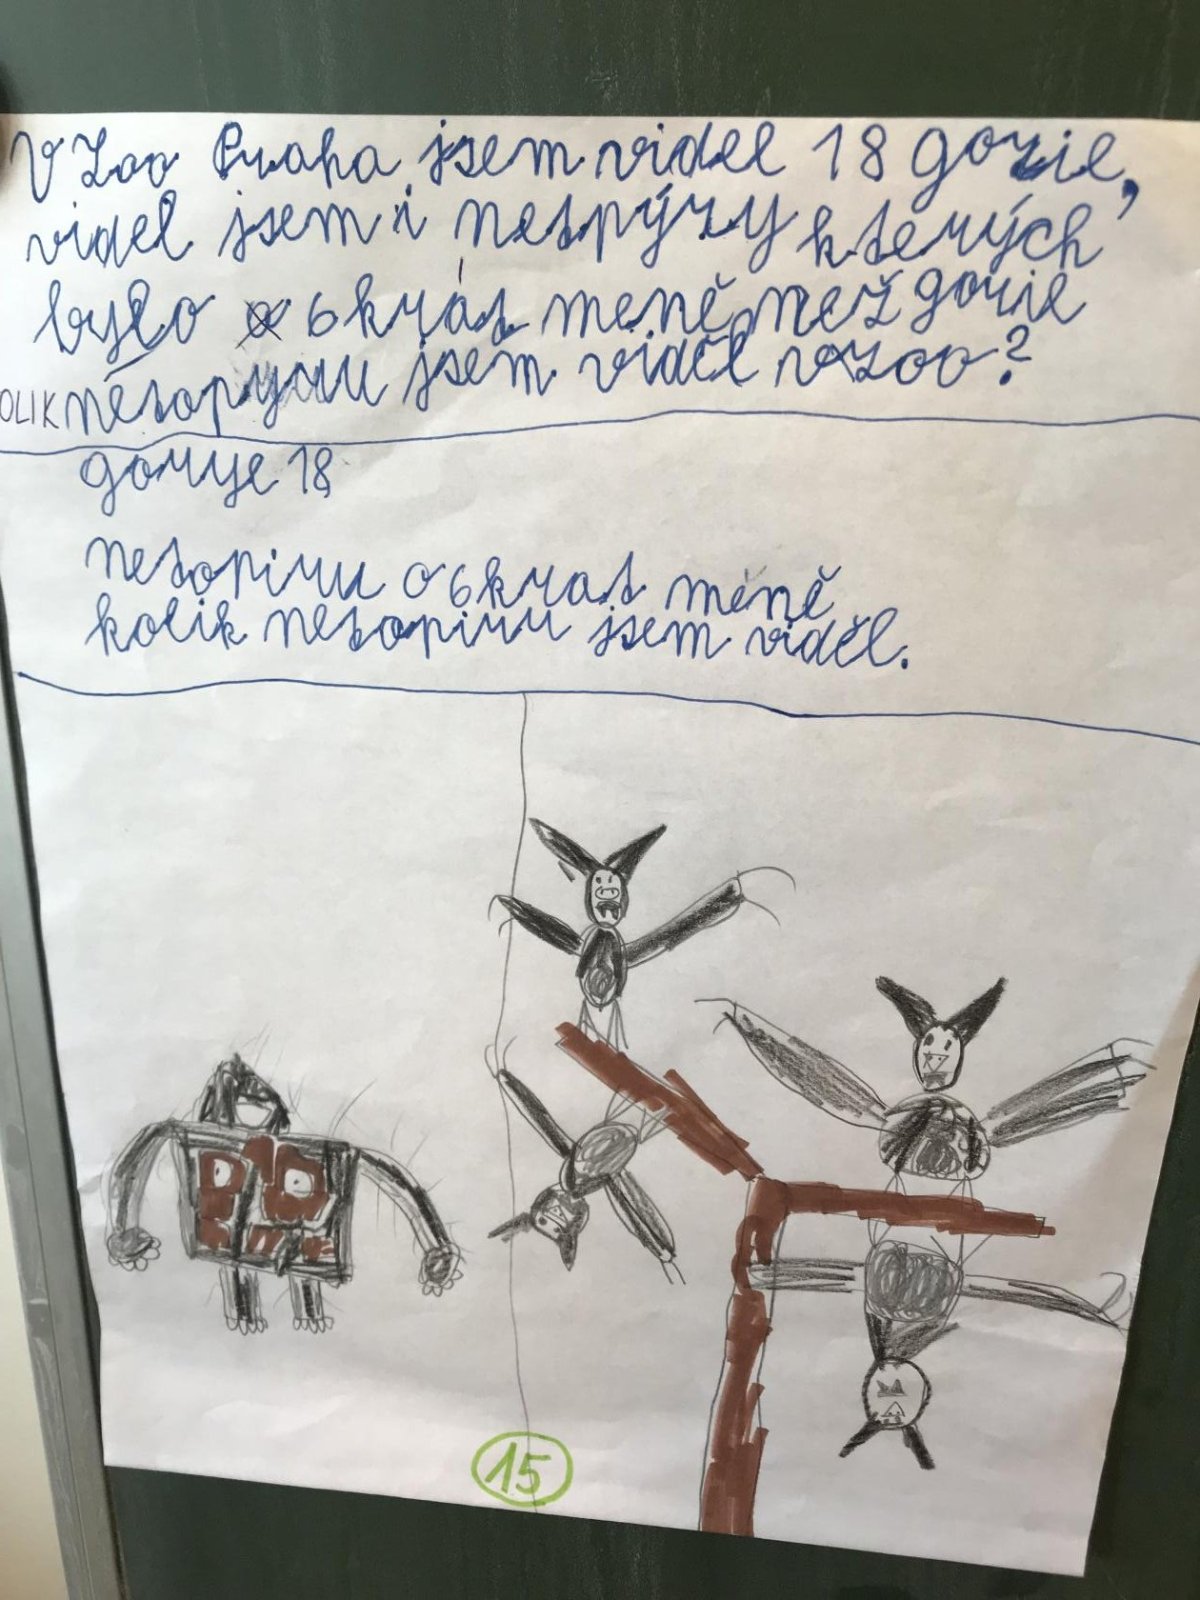 V Zoo Praha jsem viděl 18 goril,
viděl jsem i netpýry kterých
bylo 6krát meně než goril
OLIK nétopyru jsem viděl v zoo?
gorye 18
netopiru o 6krat méně
kolik netopiru jsem viděl.
15